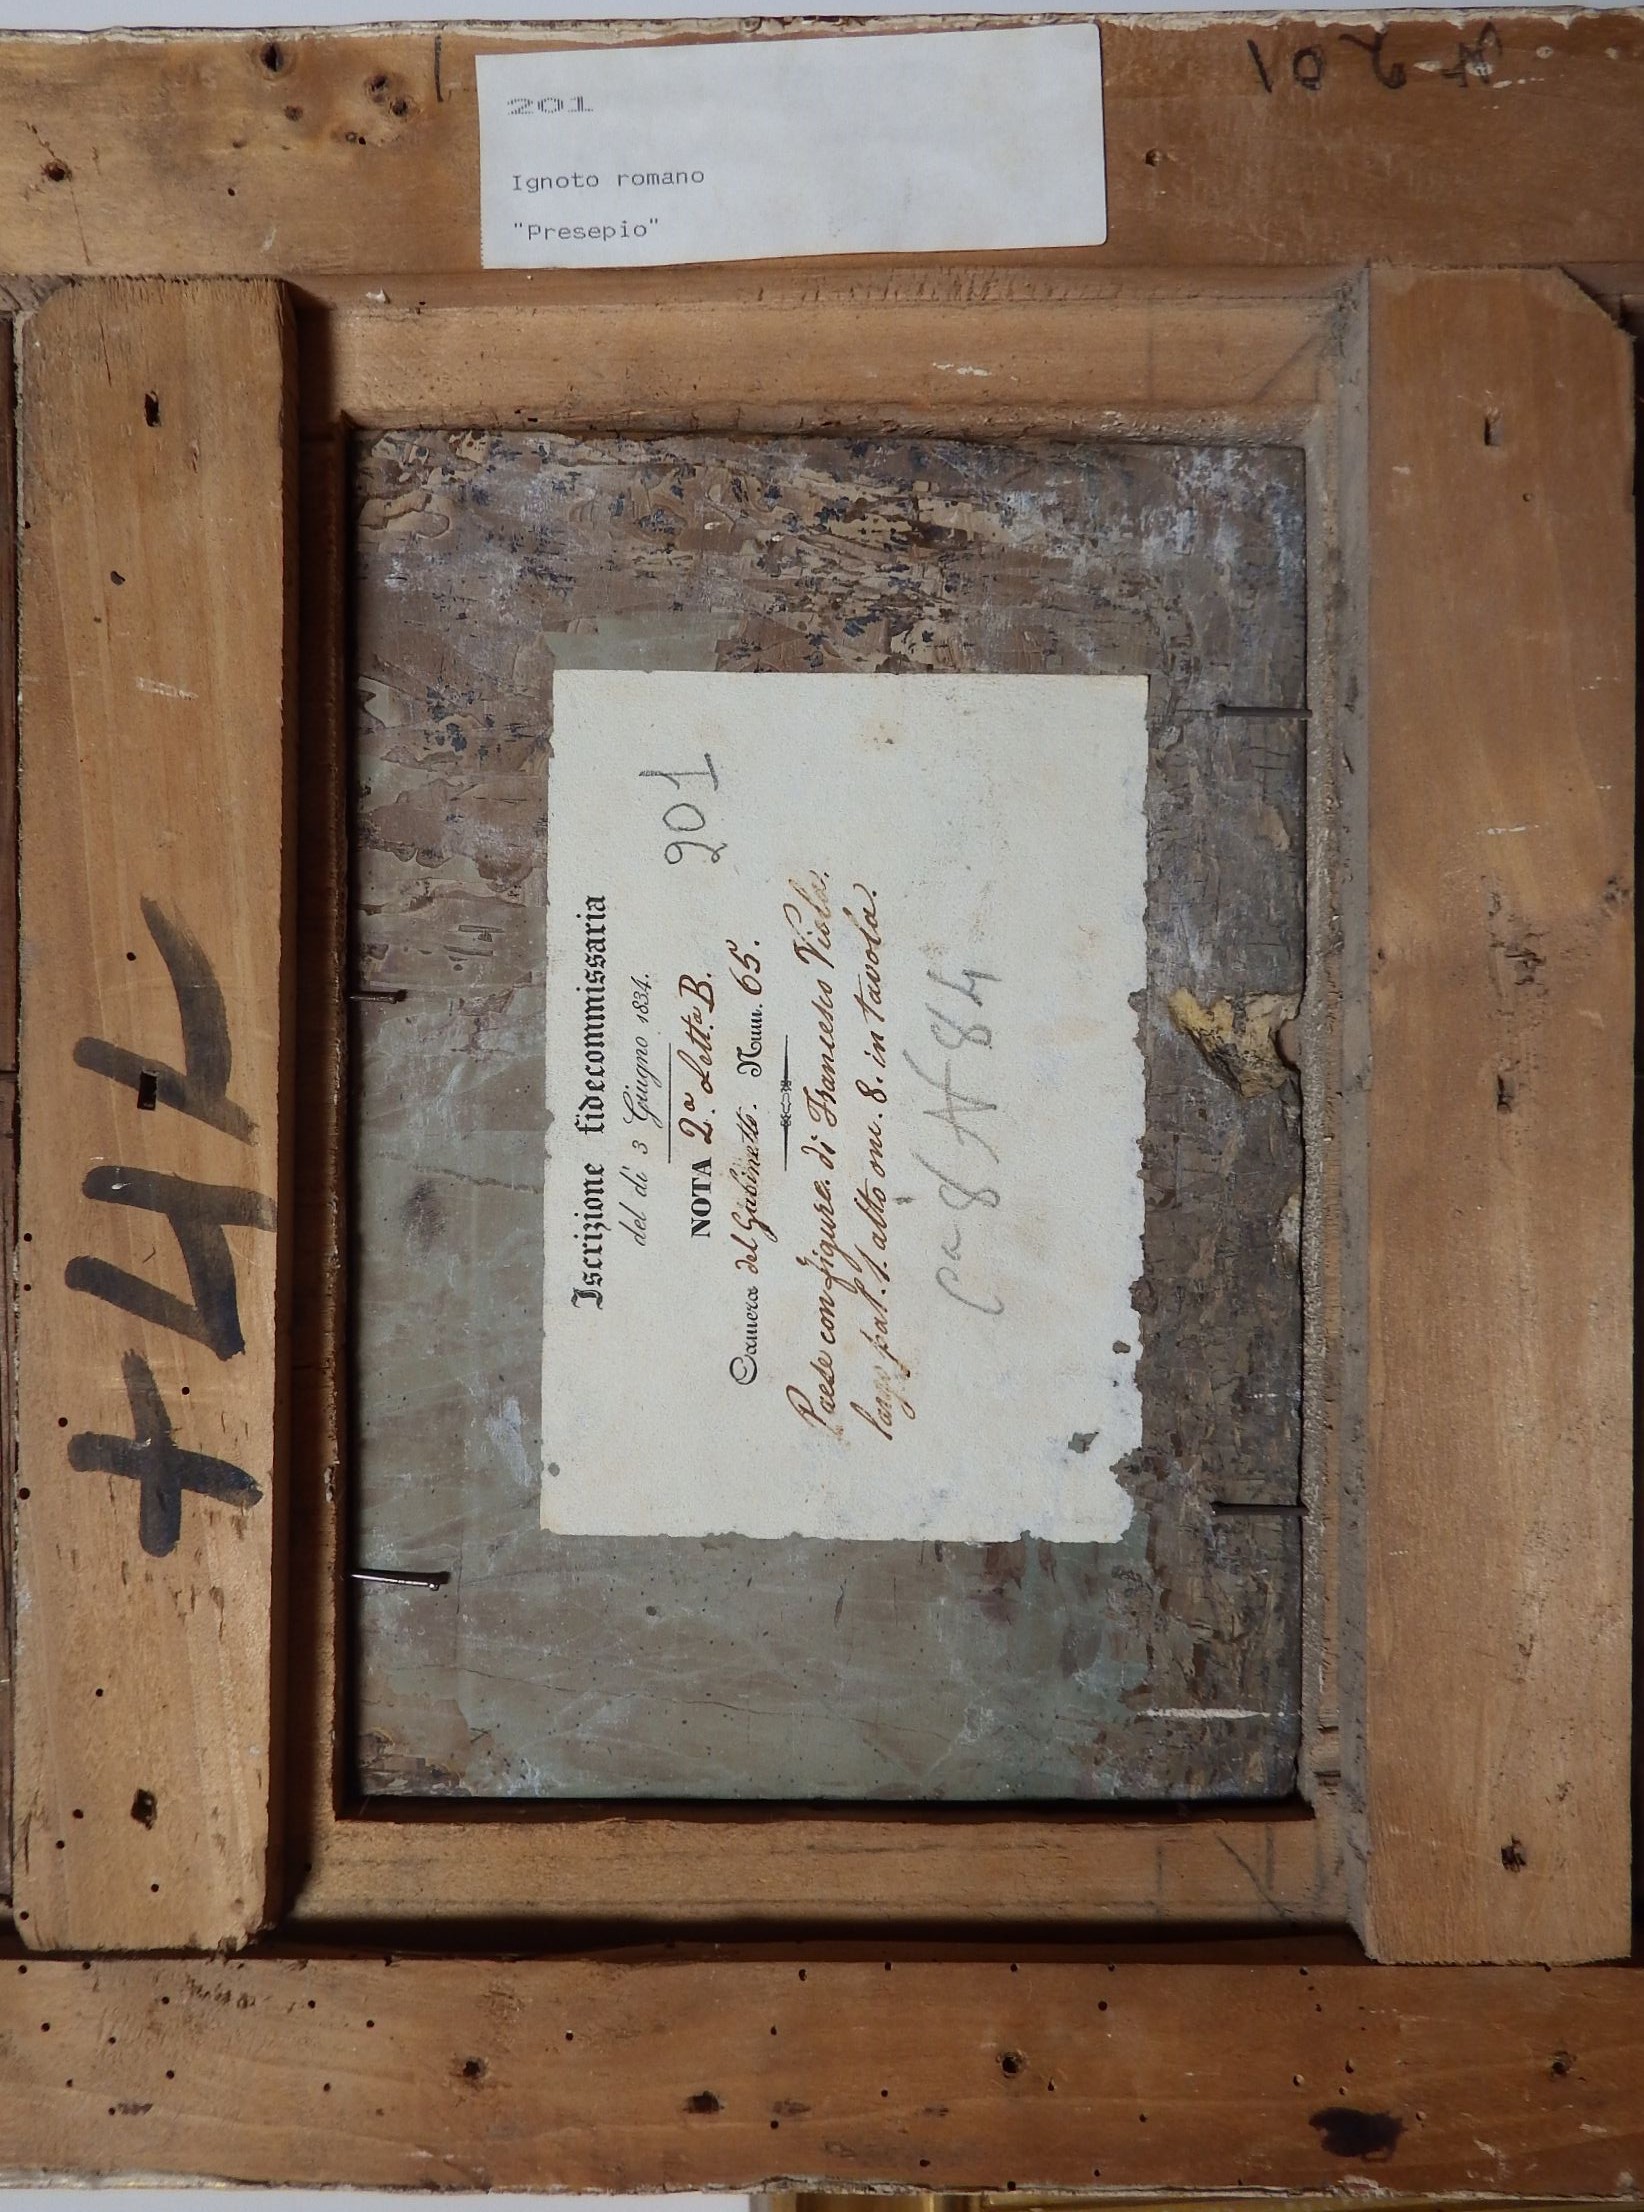 201
Ignoto romano
"Presepio"
N 201
Iscrizione fidecommissaria
del dì 3 Giugno 1834.
NOTA 2.ª Lett.ª B.
201
Camera del Gabinetto. Num. 65.
Paese con figure. di Francesco Viola.
largo pal. 1. alto onc. 8. in tavola.
N 84
+44